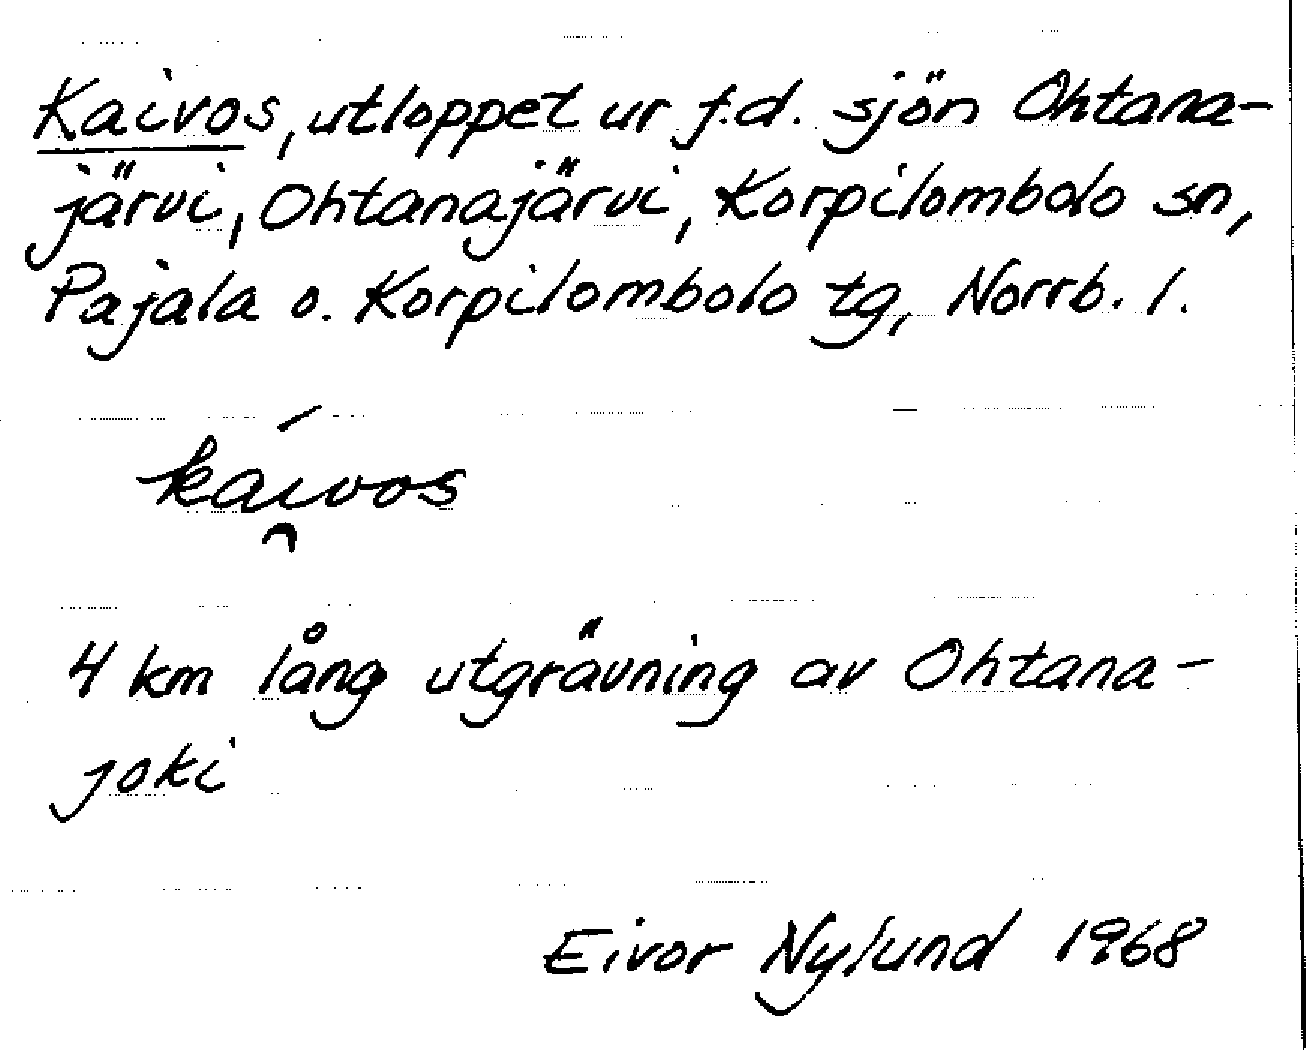 Kaivos, utloppet ur f.d. sjön Ohtana-
järvi, Ohtanajärvi, Korpilombolo sn,
Pajala o. Korpilombolo tg, Norrb. l.
kái̯vos
4 km lång utgrävning av Ohtana-
joki
Eivor Nylund 1968